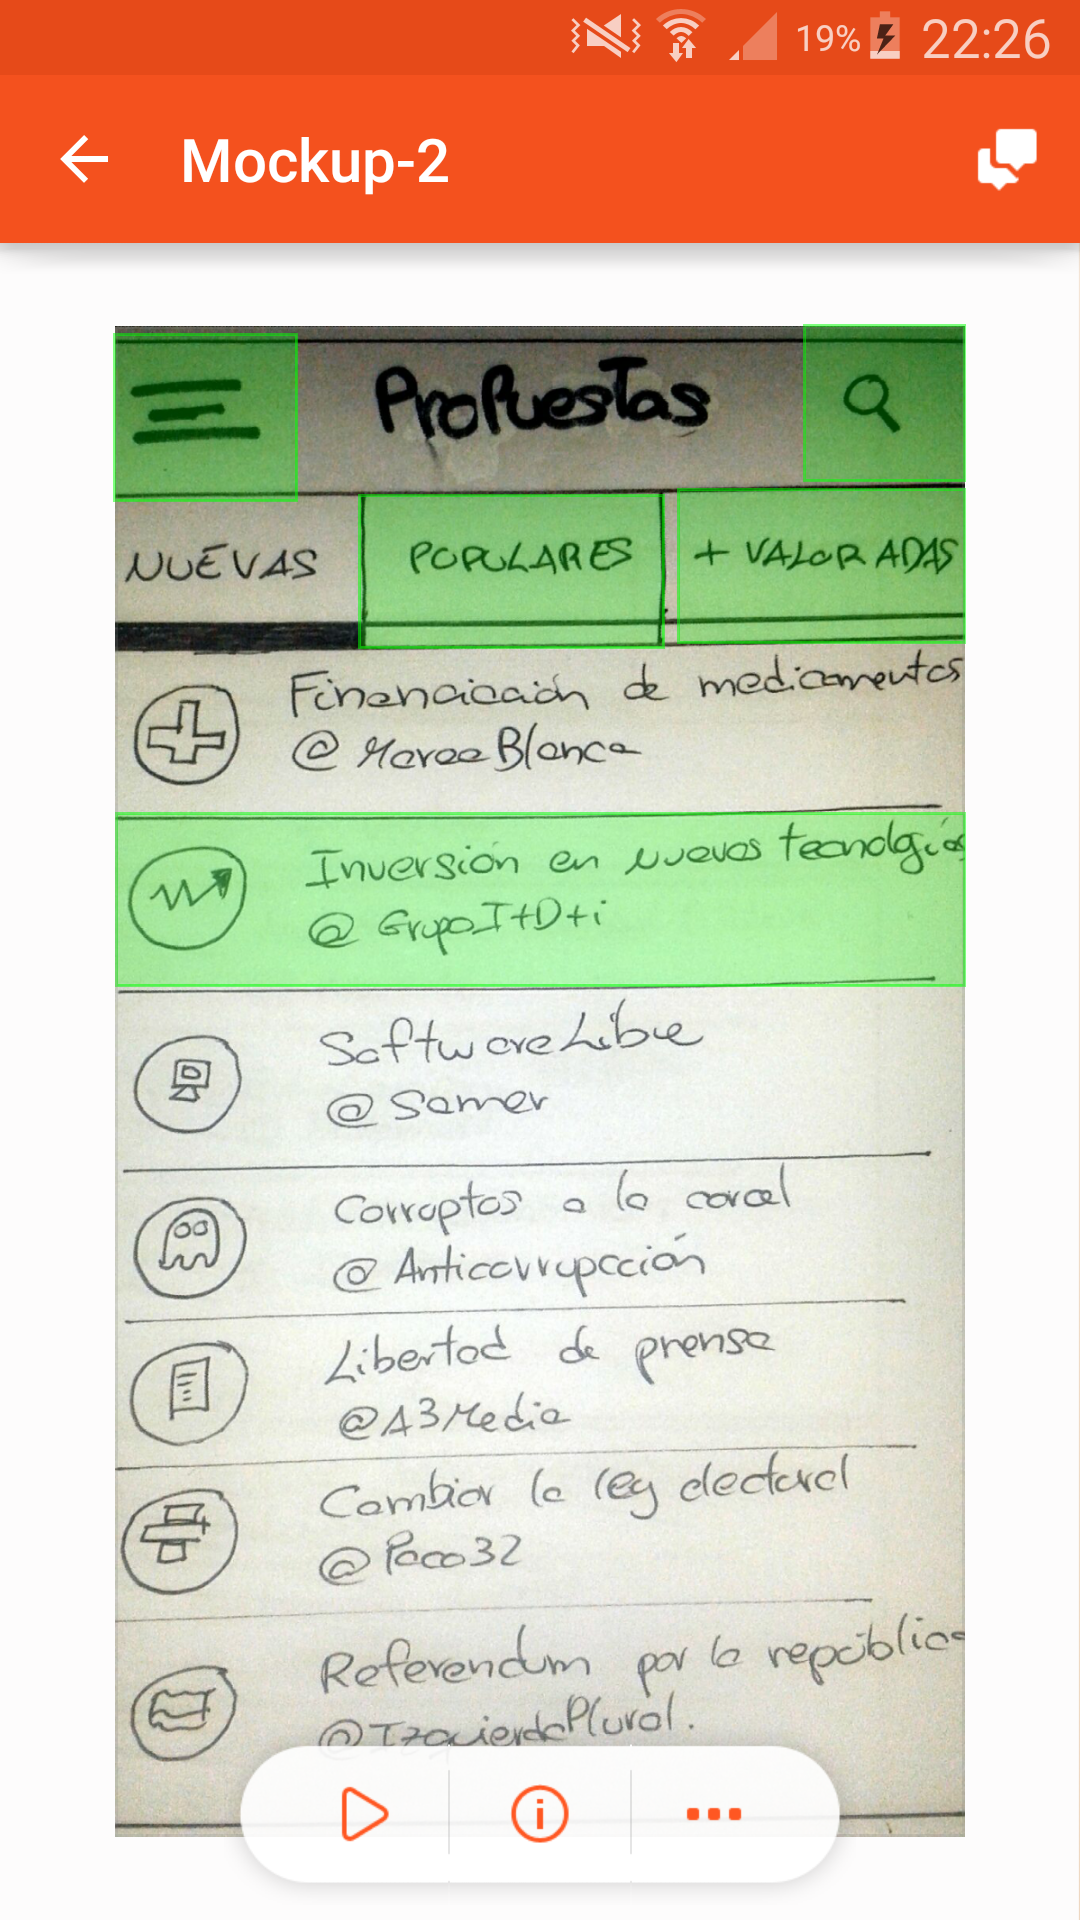 19% 22:26
Mockup-2
Propuestas
NUEVAS POPULARES + VALORADAS
Financiación de medicamentos
@MareaBlanca
Inversión en nuevas tecnologías
@GrupoI+D+i
Software Libre
@Samer
Corruptos a la carcel
@Anticorrupcción
Libertad de prensa
@A3Media
Cambiar la ley electoral
@Paco32
Referendum por la república
@IzquierdaPlural.